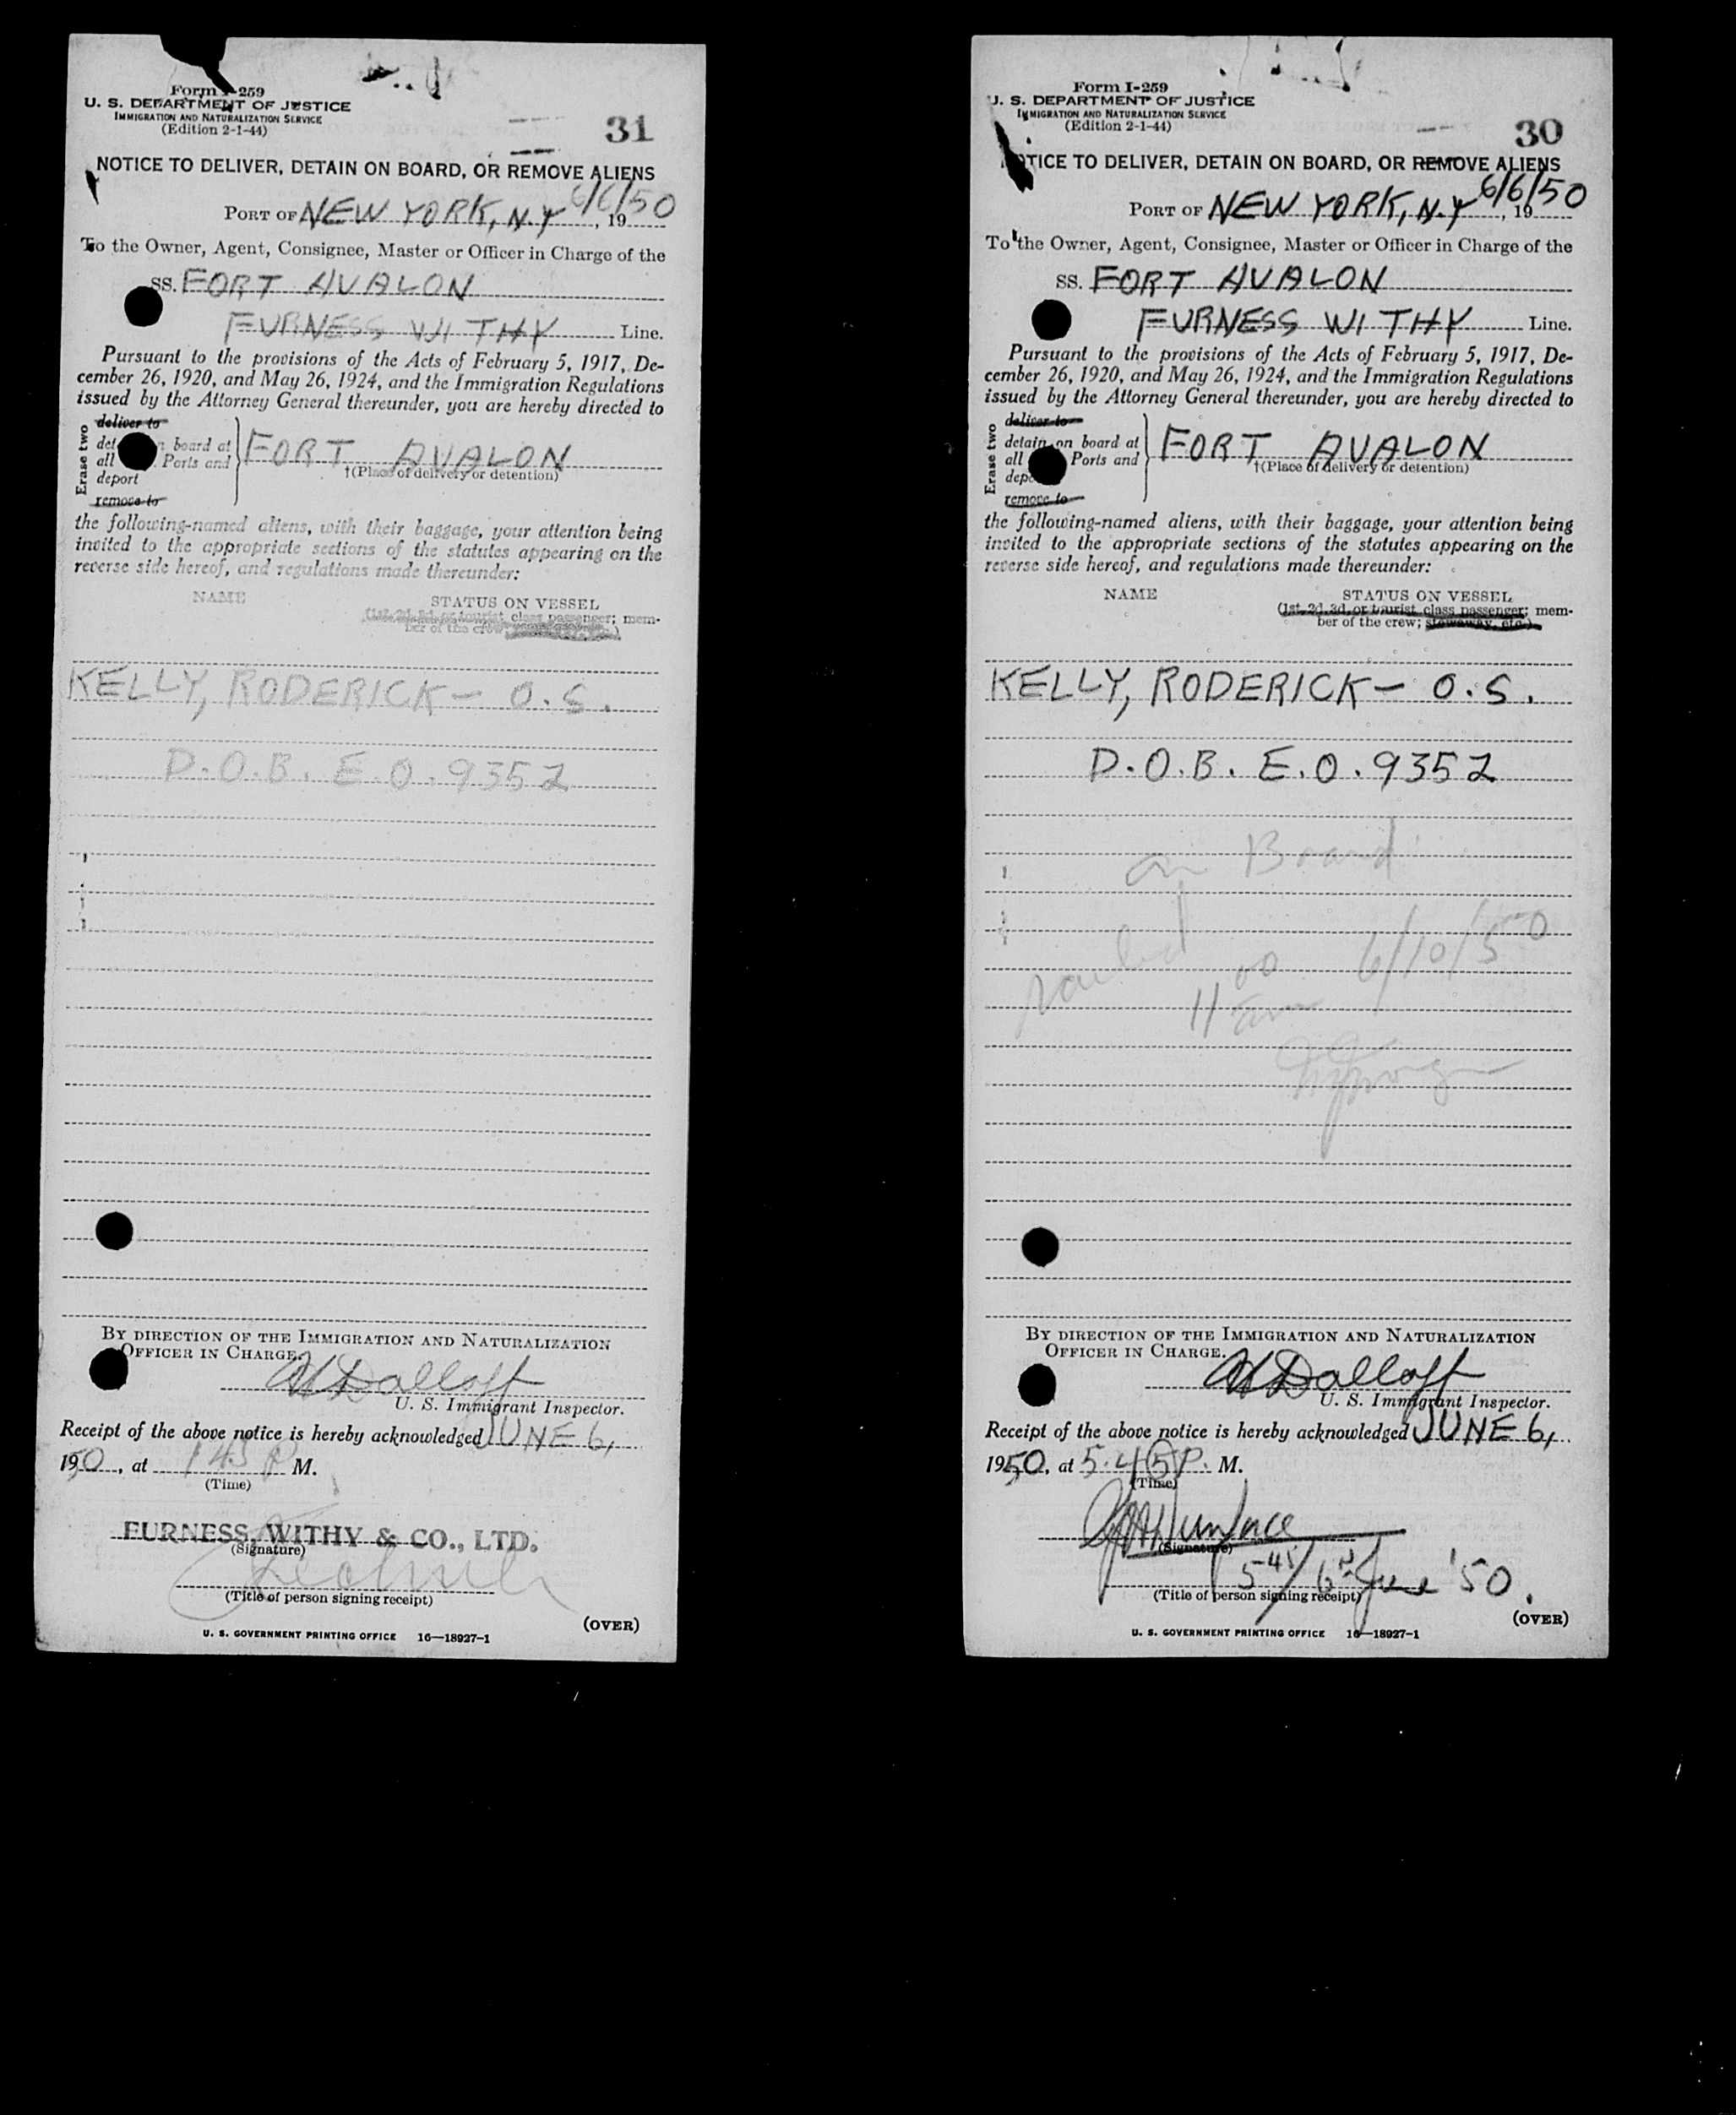 Form I-259
U. S. DEPARTMENT OF JUSTICE
IMMIGRATION AND NATURALIZATION SERVICE
(Edition 2-1-44)
31
NOTICE TO DELIVER, DETAIN ON BOARD, OR REMOVE ALIENS
PORT OF NEW YORK, N.Y 6/6/50, 19
To the Owner, Agent, Consignee, Master or Officer in Charge of the
SS. FORT AVALON
FURNESS WITHY Line.
Pursuant to the provisions of the Acts of February 5, 1917, De-
cember 26, 1920, and May 26, 1924, and the Immigration Regulations
issued by the Attorney General thereunder, you are hereby directed to
Erase two
deliver to
det n board at
all Ports and
deport
remove to
FORT AVALON
†(Place of delivery or detention)
the following-named aliens, with their baggage, your attention being
invited to the appropriate sections of the statutes appearing on the
reverse side hereof, and regulations made thereunder:
NAME STATUS ON VESSEL
(1st, 2d, 3d, or tourist class passenger; mem-
ber of the crew; stowaway, etc.)
KELLY, RODERICK - O.S.
D.O.B. E.O. 9352
BY DIRECTION OF THE IMMIGRATION AND NATURALIZATION
OFFICER IN CHARGE.
U. S. Immigrant Inspector.
Receipt of the above notice is hereby acknowledged JUNE 6,
1950, at 1 45 P M.
(Time)
FURNESS, WITHY & CO., LTD.
(Signature)
(Title of person signing receipt)
(OVER)
U. S. GOVERNMENT PRINTING OFFICE 16—18927-1
Form I-259
U. S. DEPARTMENT OF JUSTICE
IMMIGRATION AND NATURALIZATION SERVICE
(Edition 2-1-44)
30
NOTICE TO DELIVER, DETAIN ON BOARD, OR REMOVE ALIENS
PORT OF NEW YORK, N.Y 6/6/50, 19
To the Owner, Agent, Consignee, Master or Officer in Charge of the
SS. FORT AVALON
FURNESS WITHY Line.
Pursuant to the provisions of the Acts of February 5, 1917, De-
cember 26, 1920, and May 26, 1924, and the Immigration Regulations
issued by the Attorney General thereunder, you are hereby directed to
Erase two
deliver to
detain on board at
all Ports and
depo
remove to
FORT AVALON
†(Place of delivery or detention)
the following-named aliens, with their baggage, your attention being
invited to the appropriate sections of the statutes appearing on the
reverse side hereof, and regulations made thereunder:
NAME STATUS ON VESSEL
(1st, 2d, 3d, or tourist class passenger; mem-
ber of the crew; stowaway, etc.)
KELLY, RODERICK - O.S.
D.O.B. E.O. 9352
on Board
6/10/50
11 00
BY DIRECTION OF THE IMMIGRATION AND NATURALIZATION
OFFICER IN CHARGE.
U. S. Immigrant Inspector.
Receipt of the above notice is hereby acknowledged JUNE 6,
1950, at 5.45 P. M.
(Time)
(Signature)
5 45/6 June '50.
(Title of person signing receipt)
(OVER)
U. S. GOVERNMENT PRINTING OFFICE 16—18927-1